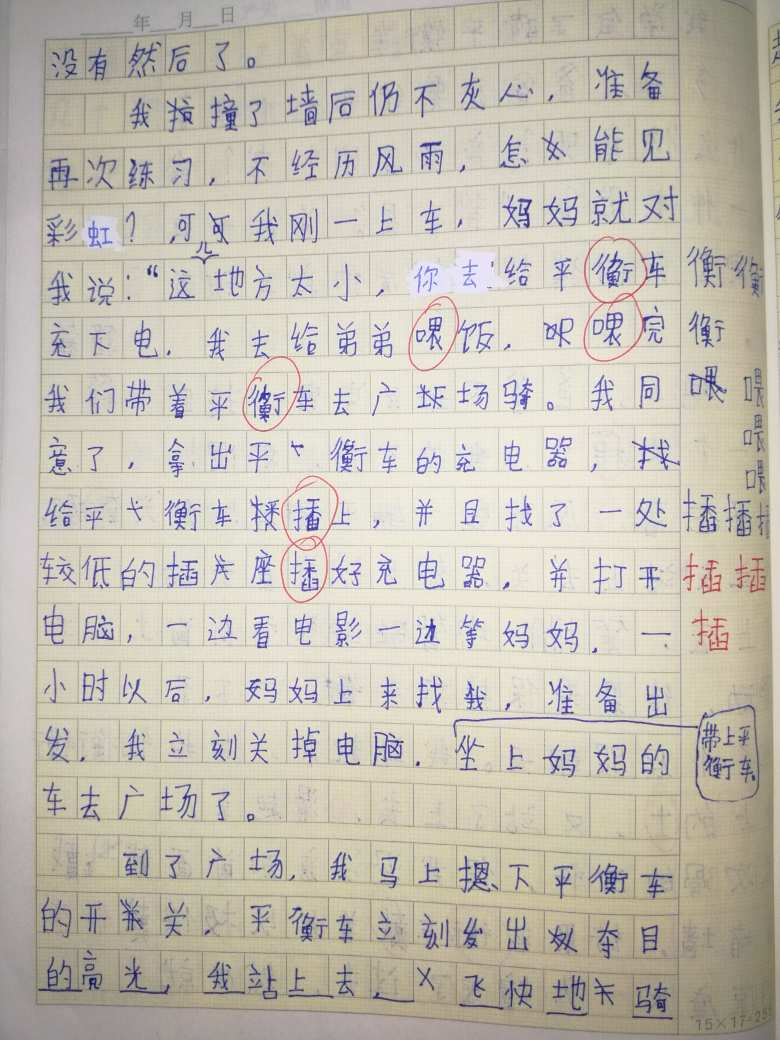 年 月 日
没有然后了。
我撞了墙后仍不灰心，准备
再次练习，不经历风雨，怎能见
彩虹？可我刚一上车，妈妈就对
我说：“这儿地方太小，你去给平衡车 衡 衡
充下电，我去给弟弟喂饭，喂完 衡
我们带着平衡车去广场骑。我同 喂 喂
意了，拿出平衡车的充电器， 喂
喂
给平衡车插上，并且找了一处 插插插
较低的插座插好充电器，并打开 插 插
电脑，一边看电影一边等妈妈，一 插
小时以后，妈妈上来找我，准备出
发，我立刻关掉电脑，坐上妈妈的 带上平
衡车
车去广场了。
到了广场，我马上摁下平衡车
的开关，平衡车立刻发出夺目
的亮光，我站上去，飞快地骑
15×17=25